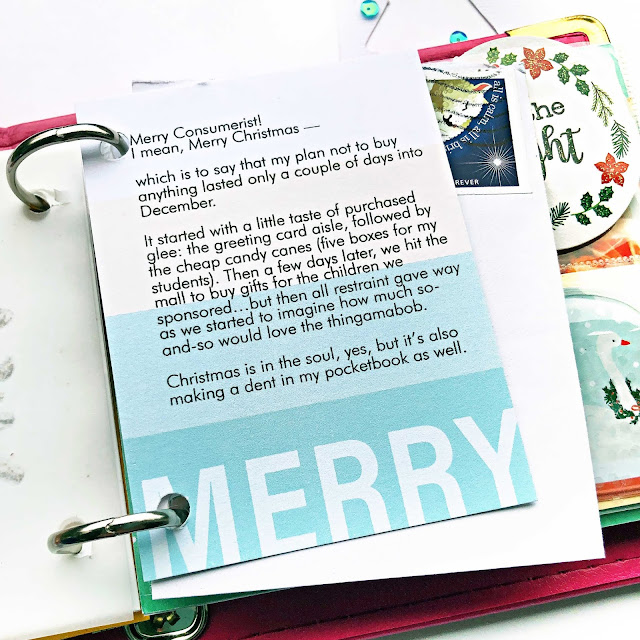 Merry Consumerist!
I mean, Merry Christmas —
which is to say that my plan not to buy
anything lasted only a couple of days into
December.
It started with a little taste of purchased
glee: the greeting card aisle, followed by
the cheap candy canes (five boxes for my
students). Then a few days later, we hit the
mall to buy gifts for the children we
sponsored...but then all restraint gave way
as we started to imagine how much so-
and-so would love the thingamabob.
Christmas is in the soul, yes, but it's also
making a dent in my pocketbook as well.
MERRY
all is calm, all is bri
REVER
he
ght